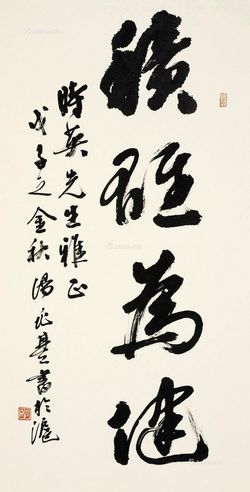 積雄為健
時英先生雅正
戊子之金秋湯兆基書於滬